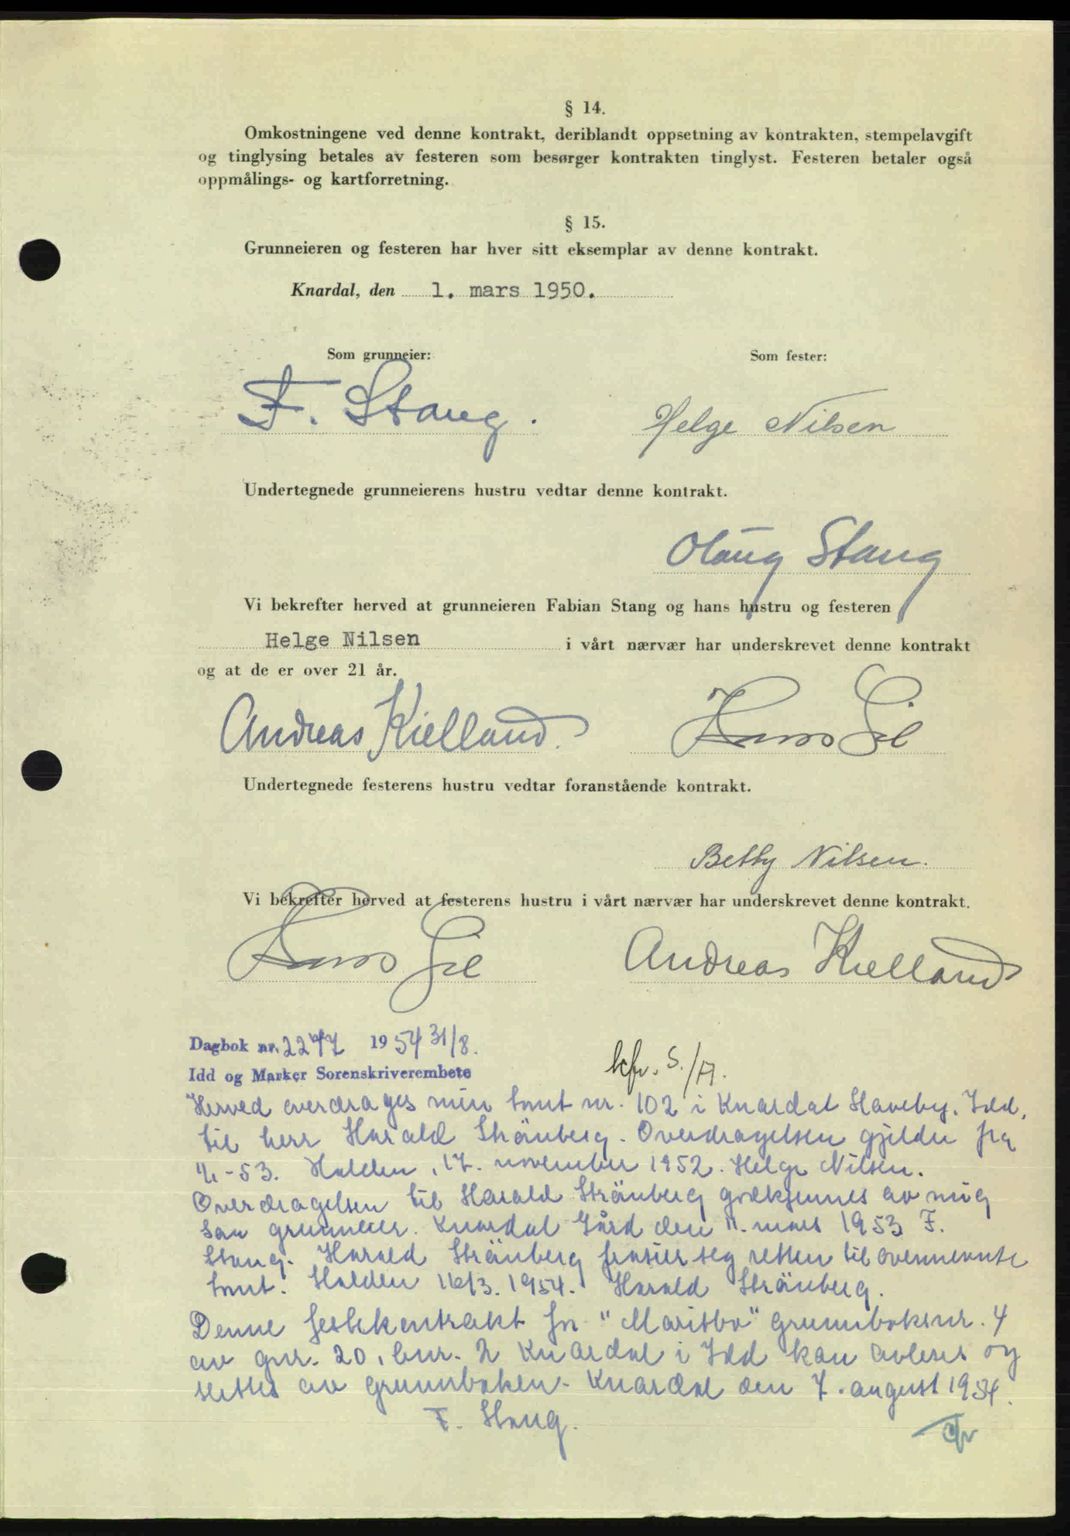 § 14.
Omkostningene ved denne kontrakt, deriblandt oppsetning av kontrakten, stempelavgift
og tinglysing betales av festeren som besørger kontrakten tinglyst. Festeren betaler også
oppmålings- og kartforretning.
§ 15.
Grunneieren og festeren har hver sitt eksemplar av denne kontrakt.
Knardal, den 1. mars 1950.
Som grunneier: Som fester:
F. Stang. Helge Nilsen
Undertegnede grunneierens hustru vedtar denne kontrakt.
Olaug Stang
Vi bekrefter herved at grunneieren Fabian Stang og hans hustru og festeren
Helge Nilsen i vårt nærvær har underskrevet denne kontrakt
og at de er over 21 år.
Andreas Kielland.
Undertegnede festerens hustru vedtar foranstående kontrakt.
Betty Nilsen.
Vi bekrefter herved at festerens hustru i vårt nærvær har underskrevet denne kontrakt.
Andreas Kielland
Dagbok nr. 2277 1954 31/8.
Idd og Marker Sorenskriverembete
Herved overdrages min tomt nr. 102 i Knardal Haveby, Idd,
til herr Harald Stränberg. Overdragelsen gjelder fra
1/1-53. Halden, 17. november 1952. Helge Nilsen.
Overdragelsen til Harald Stränberg godkjennes av mig
som grunneier. Knardal Gård den 11. mars 1953 F.
Stang. Harald Stränberg seg retten til ovennevnte
tomt. Halden 16/3. 1954. Harald Stränberg.
Denne festekontrakt for "Maritbo" grunnboksnr. 4
av gnr. 20, bnr. 2 Knardal i Idd kan avleses og
slettes av grunnboken. Knardal den 7. august 1954.
F. Stang.